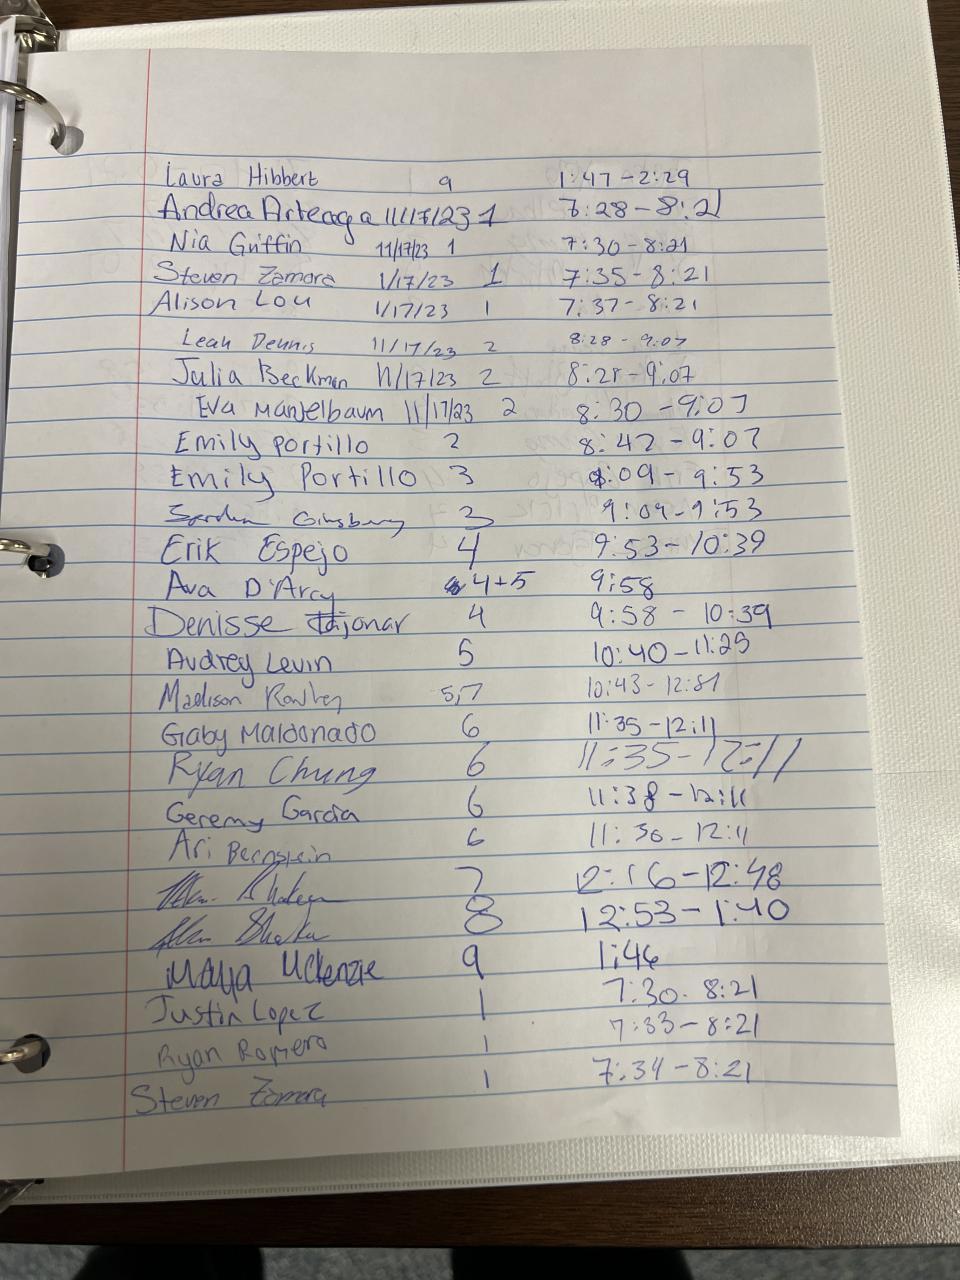 Laura Hibbert 9 1:47-2:29
Andrea Arteaga 11/17/23 1 7:28-8:21
Nia Griffin 11/17/23 1 7:30-8:21
Steven Zamora 1/17/23 1 7:35-8:21
Alison Lou 1/17/23 1 7:37-8:21
Leah Dennis 11/17/23 2 8:28-9:07
Julia Beckman 11/17/23 2 8:28-9:07
Eva Mantelbaum 11/17/23 2 8:30-9:07
Emily Portillo 2 8:42-9:07
Emily Portillo 3 9:09-9:53
Ginsburg 3 9:09-9:53
Erik Espejo 4 9:53-10:39
Ava D'Arcy 4+5 9:58
Denisse 4 9:58-10:39
Audrey Levin 5 10:40-11:29
Madison 5,7 10:43-12:51
Gaby Maldonado 6 11:35-12:11
Ryan Chung 6 11:35-12:11
Geremy Garcia 6 11:38-12:11
Ari Bernstein 6 11:36-12:11
7 12:16-12:48
8 12:53-1:40
Maya Mckenzie 9 1:46
Justin Lopez 1 7:30-8:21
Ryan Romero 1 7:33-8:21
Steven Zamora 1 7:34-8:21